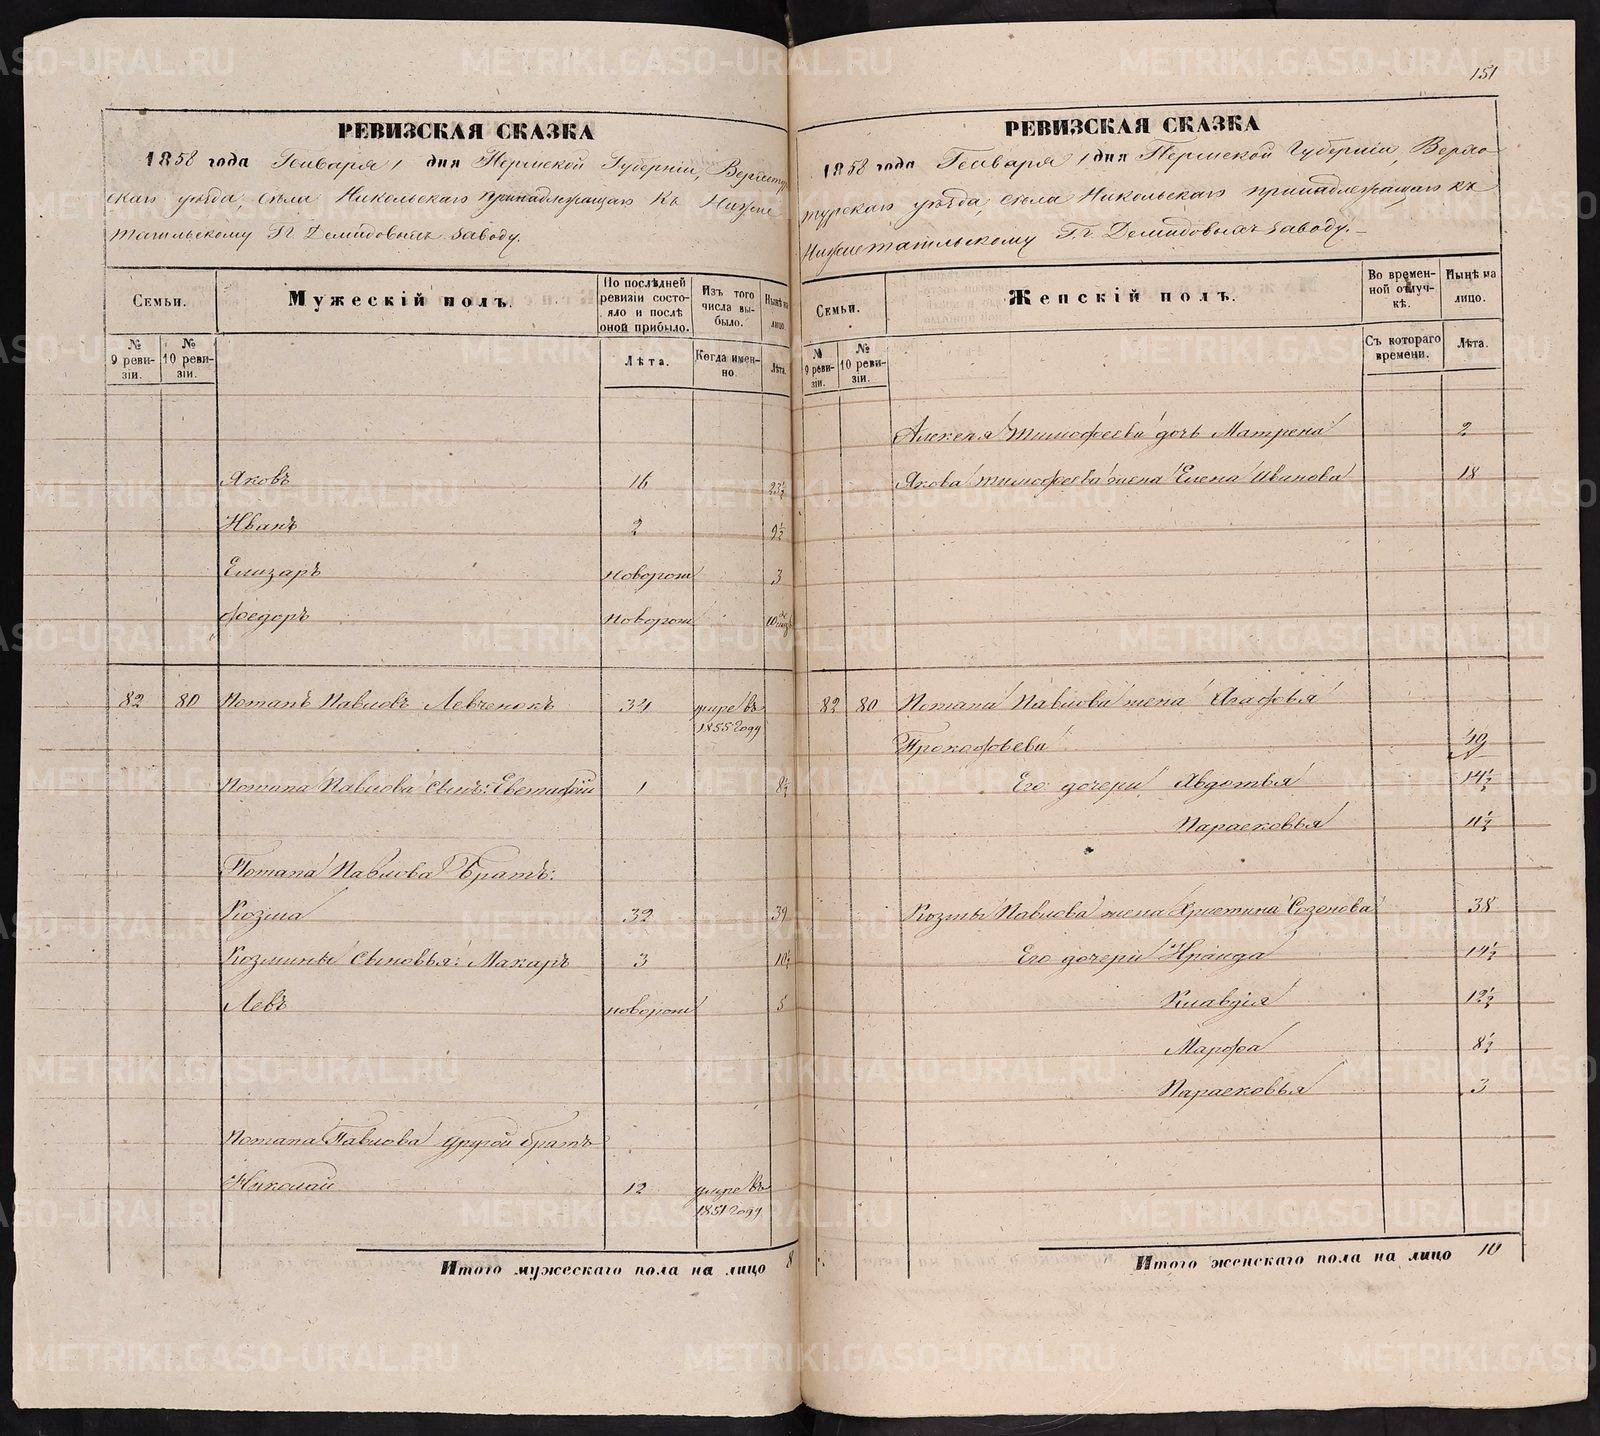 РЕВИЗСКАЯ СКАЗКА
1858 года Генваря 1 дня Пермской Губернiи, Верхоту
скаго уѣзда, села Никольскаго принадлежащаго къ Нижне
тагильскому Гг. Демидовыхъ заводу.
Семьи.
Мужескiй полъ.
По послѣдней ревизiи состояло и послѣ оной прибыло.
Изъ того числа выбыло.
Нынѣ на лицо.
№ 9 ревизiи.
№ 10 ревизiи.
Лѣта.
Когда именно.
Лѣта.
Яковъ 16 23½
Иванъ 2 9½
Елизаръ новорож 3
Федоръ новорож 10
82 80 Потапъ Павловъ Левченокъ 34 умре въ
1855 году
Потапа Павлова сынъ: Евстифiй 1 8½
Потапа Павлова братъ:
Козма 32 39
Козмины сыновья: Макаръ 3 10½
Левъ новорож 5
Потапа Павлова другой братъ
Николай 12 умре въ
1851 году
Итого мужескаго пола на лицо 8
151
РЕВИЗСКАЯ СКАЗКА
1858 года Генваря 1 дня Пермской Губернiи, Верхо-
турскаго уѣзда, села Никольскаго принадлежащаго къ
Нижнетагильскому Г.г. Демидовыхъ заводу.-
Семьи.
Женскiй полъ.
Во временной отлучкѣ.
Нынѣ на лицо.
№ 9 ревизiи.
№ 10 ревизiи.
Съ котораго времени.
Лѣта.
Алексея Тимофеева дочь Матрена 2
Якова Тимофеева жена Елена Иванова 18
82 80 Потапа Павлова жена Агафья
Прокофьева 49
Его дочери Авдотья 14½
Парасковья 11½
Козмы Павлова жена Христина Созонова 38
Его дочери Ираида 14½
Клавдiя 12½
Марфа 8½
Парасковья 3
Итого женскаго пола на лицо 10
METRIKI.GASO-URAL.RU